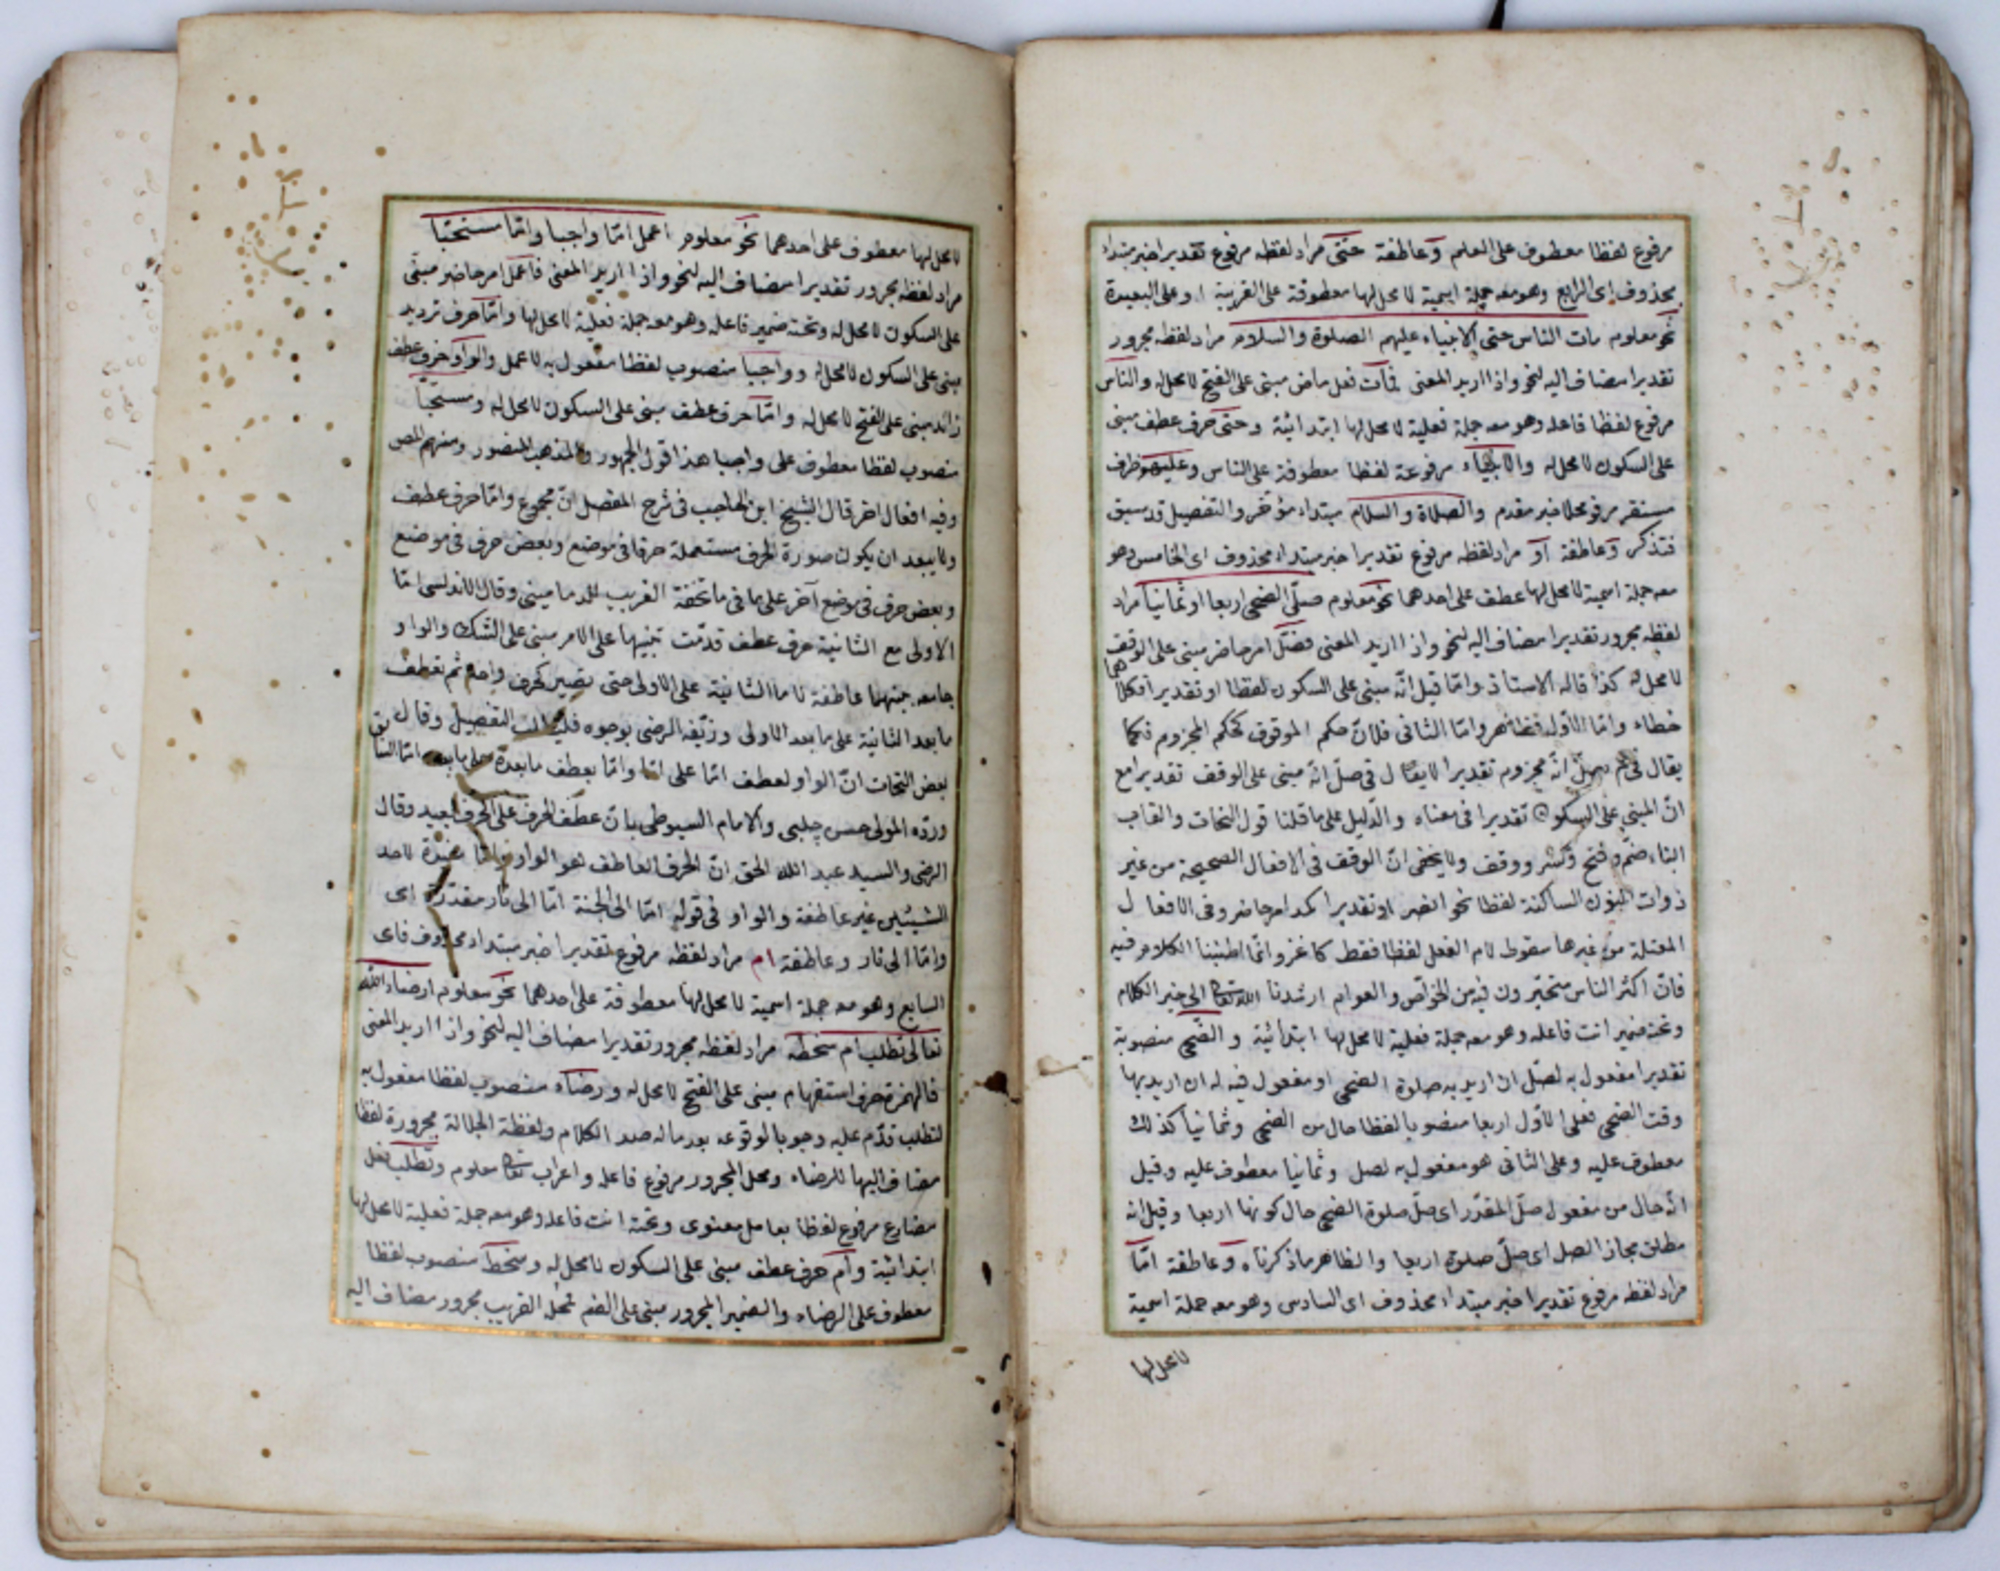 مرفوع لفظا معطوف على العلم وعاطفة حتى مراد لفظه مرفوع تقديرا خبر مبتداء
محذوف اى الرابع وهو معه جملة اسمية لا محل لها معطوفة على القريبة او على البعيدة
نحو معلوم مات الناس حتى الانبياء عليهم الصلوة والسلام مراد لفظه مجرور
تقديرا مضاف اليه لنحو واذا اريد المعنى فمات فعل ماض مبنى على الفتح لا محل له والناس
مرفوع لفظا فاعله وهو معه جملة فعلية لا محل لها ابتدائية وحتى حرف عطف مبنى
على السكون لا محل له والانبياء مرفوعة لفظا معطوفة على الناس وعليهم ظرف
مستقر مرفوع محلا خبر مقدم والصلاة والسلام مبتداء مؤخر والتفصيل قد سبق
فتذكر وعاطفة او مراد لفظه مرفوع تقديرا خبر مبتداء محذوف اى الخامس وهو
معه جملة اسمية لا محل لها عطف على احدهما نحو معلوم صلّ الضحى اربعا او ثمانيا مراد
لفظه مجرور تقديرا مضاف اليه لنحو واذا اريد المعنى فصلّ امر حاضر مبنى على الوقف
لا محل له كذا قاله الاستاذ واما قيل انّه مبنى على السكون لفظا او تقديرا فكلاهما
خطاء واما الاوّل فظاهر وامّا الثانى فلانّ حكم الموقوف كحكم المجزوم فكما
يقال فى لم يصلّ انّه مجزوم تقديرا لا يقال فى صلّ انّه مبنى على الوقف تقديرا مع
انّ المبنى على السكون تقديرا فى معناه والدّليل على ما قلنا قول النحات والقاب
البناء ضمّ وفتح وكسر ووقف ولا يخفى انّ الوقف فى الافعال الصحيحة من غير
ذوات النون الساكنة لفظا نحو انصر او تقديرا كمد امر حاضر وفى الافعال
المعتلة من غيرها سقوط لام الفعل لفظا فقط كاغز وانّما اطنبنا الكلام فيه
فانّ اكثر الناس متحيّرون فيه من الخواصّ والعوام ارشدنا الله تعالى الى خير الكلام
وتحته ضمير انت فاعله وهو معه جملة فعلية لا محل لها ابتدائية والضّحى منصوبة
تقديرا مفعول به لصلّ ان اريد به صلوة الضحى او مفعول فيه له ان اريد بها
وقت الضحى فعلى الاوّل اربعا منصوبا لفظا حال من الضحى وثمانيا كذلك
معطوف عليه وعلى الثانى هو مفعول به لصل وثمانيا معطوف عليه وقيل
انّه حال من مفعول صلّ المقدّر اى صلّ صلوة الضحى حال كونها اربعا وقيل انه
مطلق مجاز الصل اى صلّ صلوة اربعا والظاهر ما ذكرناه وعاطفة امّا
مراد لفظه مرفوع تقديرا خبر مبتداء محذوف اى السادس وهو معه جملة اسمية
لا محل لها
لا محل لها معطوف على احدهما نحو معلوم اعمل امّا واجبا وامّا مستحبّا
مراد لفظه مجرور تقديرا مضاف اليه لنحو واذا اريد المعنى فاعمل امر حاضر مبنى
على السكون لا محل له وتحته ضمير فاعله وهو معه جملة فعلية لا محل لها وامّا حرف ترديد
مبنى على السكون لا محل له وواجبا منصوب لفظا مفعول به لاعمل والواو حرف عطف
زائد مبنى على الفتح لا محل له وامّا حرف عطف مبنى على السكون لا محل له ومستحبّا
منصوب لفظا معطوف على واجبا هذا قول الجمهور والمذهب المنصور ومنهم المص
وفيه اقوال اخر قال الشيخ ابن الحاجب فى شرح المفصل انّ مجموع وامّا حرف عطف
ولا يبعد ان يكون صورة الحرف مستعملة حرفا فى موضع وبعض حرف فى موضع
وبعض حرف فى موضع آخر على ما فى تحفة الغريب للدمامينى وقال الاندلسى امّا
الاولى مع الثانية حرف عطف قدّمت تنبيها على الامر مبنى على الشك والواو
جامعه بينهما عاطفة لاما الثانية على الاولى حتى تصير كحرف واحد ثم تعطف
ما بعد الثانية على ما بعد الاولى وزيّفه الرضى بوجوه التفصيل وقال
بعض النحات انّ الواو لعطف امّا على امّا وامّا يعطف ما بعده على ما بعد امّا السابق
وردّه المولى حسن چلبى والامام السيوطى بانّ عطف الحرف على الحرف بعيد وقال
الرضى والسيد عبد الله الحق انّ الحرف العاطف هو الواو وامّا مفيدة لاحد
الشيئين غير عاطفة والواو فى قوله امّا الى الجنة امّا الى نار مقدّرة اى
وامّا الى نار وعاطفة ام مراد لفظه مرفوع تقديرا خبر مبتداء محذوف فاى
السابع وهو معه جملة اسمية لا محل لها معطوفة على احدهما نحو معلوم ارضاء الله
تعالى تطلب ام سخطه مراد لفظه مجرور تقديرا مضاف اليه لنحو واذا اريد المعنى
فالهمزة حرف استفهام مبنى على الفتح لا محل له ورضاء منصوب لفظا مفعول به
لتطلب قدّم عليه وجوبا لوقوعه بعد ما له صدر الكلام ولفظة الجلالة مجرورة لفظا
مضاف اليها للرضاء ومحل المجرور مرفوع فاعله واعراب تعالى معلوم وتطلب فعل
مضارع مرفوع لفظا بعامل معنوى وتحته انت فاعله وهو معه جملة فعلية لا محل لها
ابتدائية وام حرف عطف مبنى على السكون لا محل له وسخط منصوب لفظا
معطوف على الرضاء والضمير المجرور مبنى على الضم فمحله القريب مجرور مضاف اليه